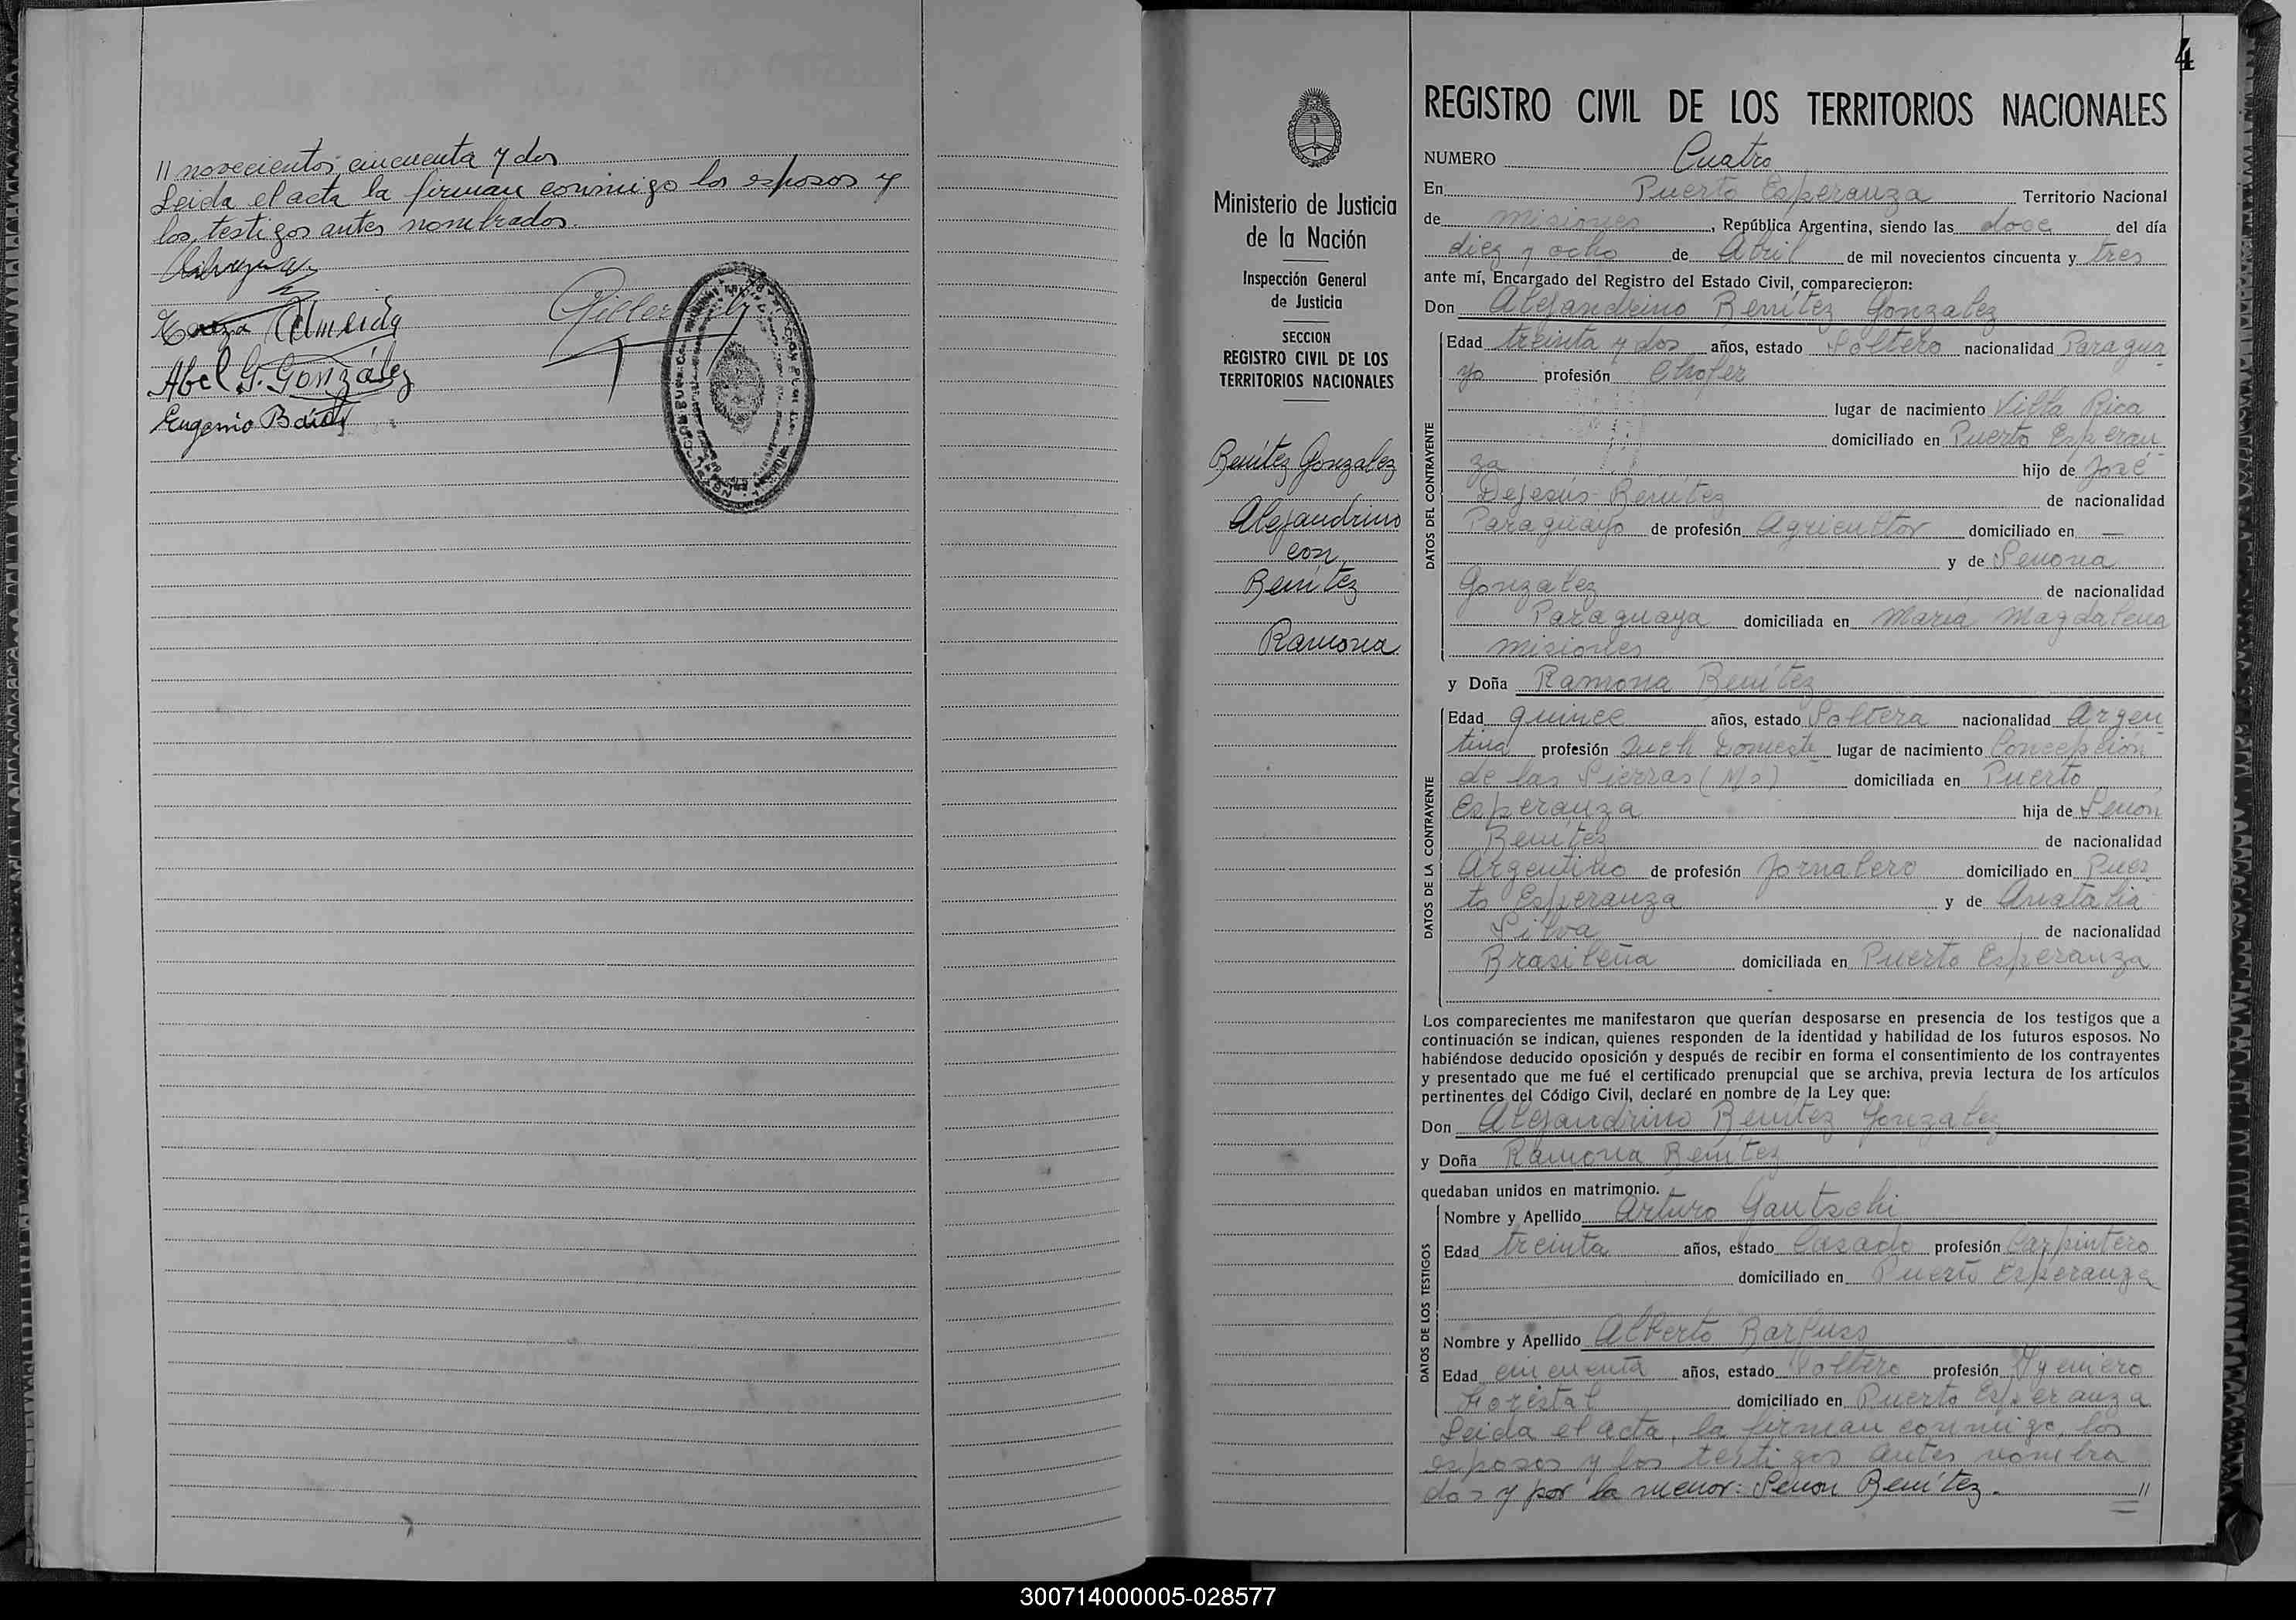 // novecientos cincuenta y dos
Leida el acta la firman conmigo los esposos y
los testigos antes nombrados.
Almeida
Abel G. González
Eugenio
4
REGISTRO CIVIL DE LOS TERRITORIOS NACIONALES
NUMERO Cuatro
En Puerto Esperanza Territorio Nacional
de Misiones, República Argentina, siendo las doce del día
diez y ocho de Abril de mil novecientos cincuenta y tres
ante mí, Encargado del Registro del Estado Civil, comparecieron:
Don Alejandrino Benítez Gonzalez
Edad treinta y dos años, estado Soltero nacionalidad Paragua
yo profesión Chofer
lugar de nacimiento Villa Rica
domiciliado en Puerto Esperan
za hijo de José
Dejesús Benitez de nacionalidad
Paraguayo de profesión Agricultor domiciliado en —
y de Senona
Gonzalez de nacionalidad
Paraguaya domiciliada en María Magdalena
Misiones
y Doña Ramona Benítez
Edad quince años, estado Soltera nacionalidad Argen
tina profesión Queh Domest. lugar de nacimiento Concepción
de las Sierras (Ms) domiciliada en Puerto
Esperanza hija de Senon
Benítez de nacionalidad
Argentino de profesión Jornalero domiciliado en Puer
to Esperanza y de Anatalia
Silva de nacionalidad
Brasileña domiciliada en Puerto Esperanza
DATOS DEL CONTRAYENTE
DATOS DE LA CONTRAYENTE
Los comparecientes me manifestaron que querían desposarse en presencia de los testigos que a
continuación se indican, quienes responden de la identidad y habilidad de los futuros esposos. No
habiéndose deducido oposición y después de recibir en forma el consentimiento de los contrayentes
y presentado que me fué el certificado prenupcial que se archiva, previa lectura de los artículos
pertinentes del Código Civil, declaré en nombre de la Ley que:
Don Alejandrino Benítez Gonzalez
y Doña Ramona Benítez
quedaban unidos en matrimonio.
Nombre y Apellido Arturo Gautschi
Edad treinta años, estado Casado profesión Carpintero
domiciliado en Puerto Esperanza
Nombre y Apellido Alberto Barfuss
Edad cincuenta años, estado Soltero profesión Yngeniero
Forestal domiciliado en Puerto Esperanza
DATOS DE LOS TESTIGOS
Leida el acta, la firman conmigo, los
esposos y los testigos antes nombra
dos y por la menor: Senon Benítez. //
Ministerio de Justicia
de la Nación
Inspección General
de Justicia
SECCION
REGISTRO CIVIL DE LOS
TERRITORIOS NACIONALES
Benítez Gonzalez
Alejandrino
con
Benítez
Ramona
300714000005-028577